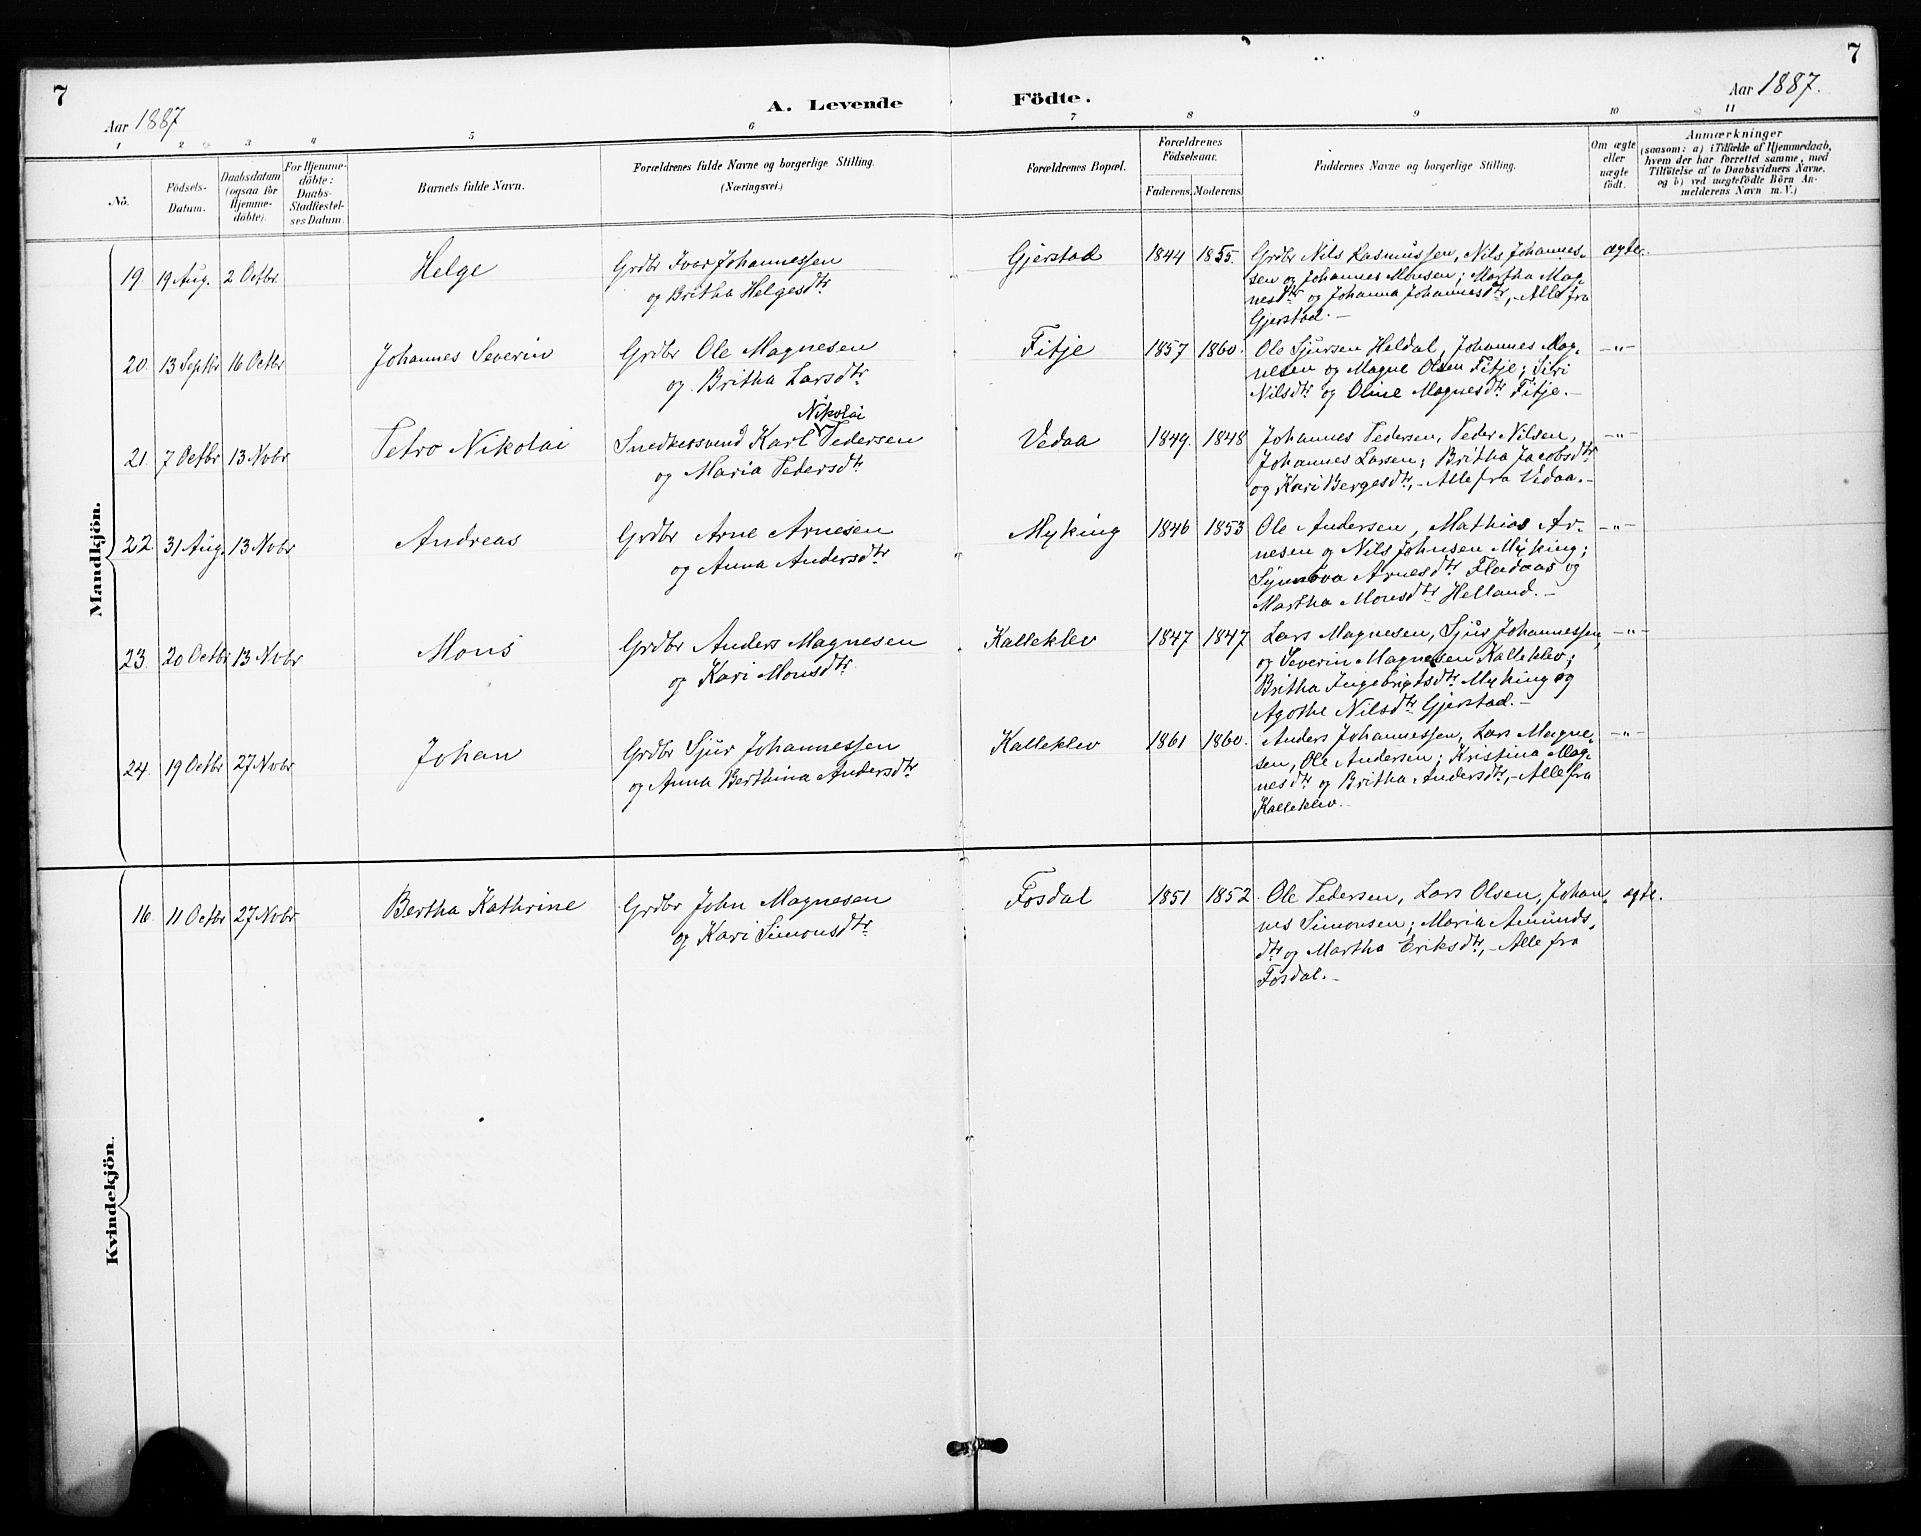 7
7
Aar 1887
A. Levende Födte.
Aar 1887.
1 2 3 4 5 6 7 8 9 10 11
No.
Födsels-Datum.
Daabsdatum (ogsaa for Hjemmedöbte).
For Hjemmedöbte: Daabs-Stadfæstelses Datum.
Barnets fulde Navn.
Forældrenes fulde Navne og borgerlige Stilling.
(Næringsvei.)
Forældrenes Bopæl.
Forældrenes Födselsaar.
Faderens. Moderens.
Faddernes Navne og borgerlige Stilling.
Om ægte eller uægte födt.
Anmærkninger
(saasom: a) i Tilfælde af Hjemmedaab, hvem der har forrettet samme, med Tilföielse af to Daabsvidners Navne, og b) ved uægtefödte Börn Anmelderens Navn m. V.)
Mandkjön.
19. 19 Aug. 2 Octbr. Helge
Grdbr Ivar Johannessen
og Britha Helgesdtr
Gjerstad 1844 1855.
Grdbr Nils Rasmussen, Nils Johannes-
sen og Johannes Monsen; Martha Mag-
nesdtr og Johanna Johannesdtr, - Alle fra
Gjerstad. -
ægte.
20. 13 Septbr 16 Octbr Johannes Severin
Grdbr Ole Magnesen
og Britha Larsdtr
Fitje 1857 1860.
Ole Sjursen Heldal, Johannes Mag-
nesen og Magne Olsen Fitje; Siri
Nilsdtr og Oline Magnesdtr Fitje. -
-"-
21. 7 Octbr 13 Novbr Petro Nikolai
Nikolai
Snedkersvend Karl Pedersen
og Maria Pedersdtr
Vedaa 1849. 1848
Johannes Pedersen, Peder Nilsen,
Johannes Larsen; Britha Jacobsdtr
og Kari Bergesdtr, - Alle fra Vedaa. -
-"-
22. 31 Aug. 13 Novbr Andreas
Grdbr Arne Arnesen
og Anna Andersdtr
Myking 1846 1853
Ole Andersen, Mathias Ar-
nesen og Nils Johnsen Myking;
Synnøva Arnesdtr Fladaas og
Martha Monsdtr Helland. -
-"-
23. 20 Octbr 13 Novbr Mons
Grdbr Anders Magnesen
og Kari Monsdtr
Kalleklev 1847 1847
Lars Magnesen, Sjur Johannessen,
og Severin Magnesen Kalleklev;
Britha Ingebrigtsdtr Myking og
Agothe Nilsdtr Gjerstad. -
-"-
24. 19 Octbr 27 Novbr Johan
Grdbr Sjur Johannessen
og Anna Berthina Andersdtr
Kalleklev 1861 1860.
Anders Johannessen, Lars Magne-
sen, Ole Andersen; Kristina Mag-
nesdtr og Britha Andersdtr, - Alle fra
Kalleklev. -
-"-
Kvindekjön.
16 11 Octbr 27 Novbr Bertha Kathrine
Grdbr John Magnesen
og Kari Simonsdtr
Fosdal 1851 1852
Ole Pedersen, Lars Olsen, Johan-
nes Simonsen; Maria Amunds-
dtr og Martha Eriksdtr, - Alle fra
Fosdal. -
ægte.